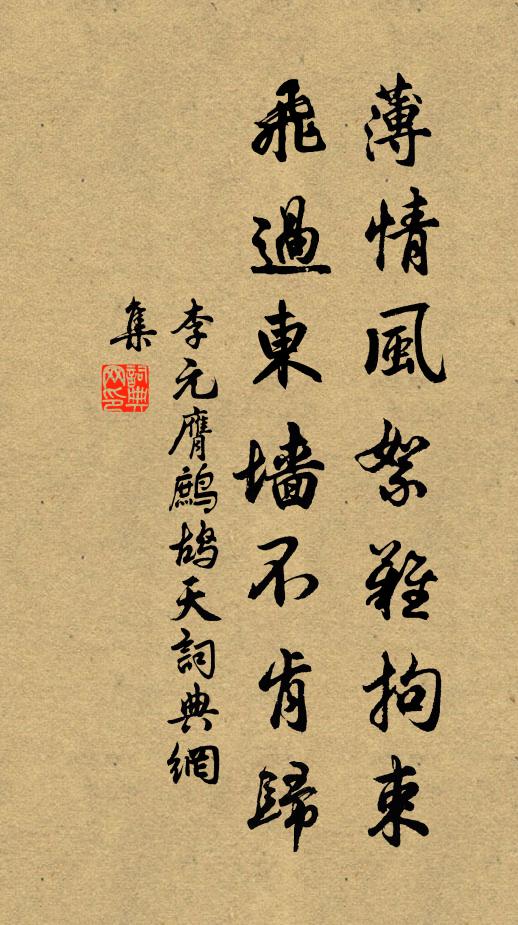 薄情風絮難拘束
飛過東墻不肯歸
李元膺鷓鴣天詞典網
集
詞典網印